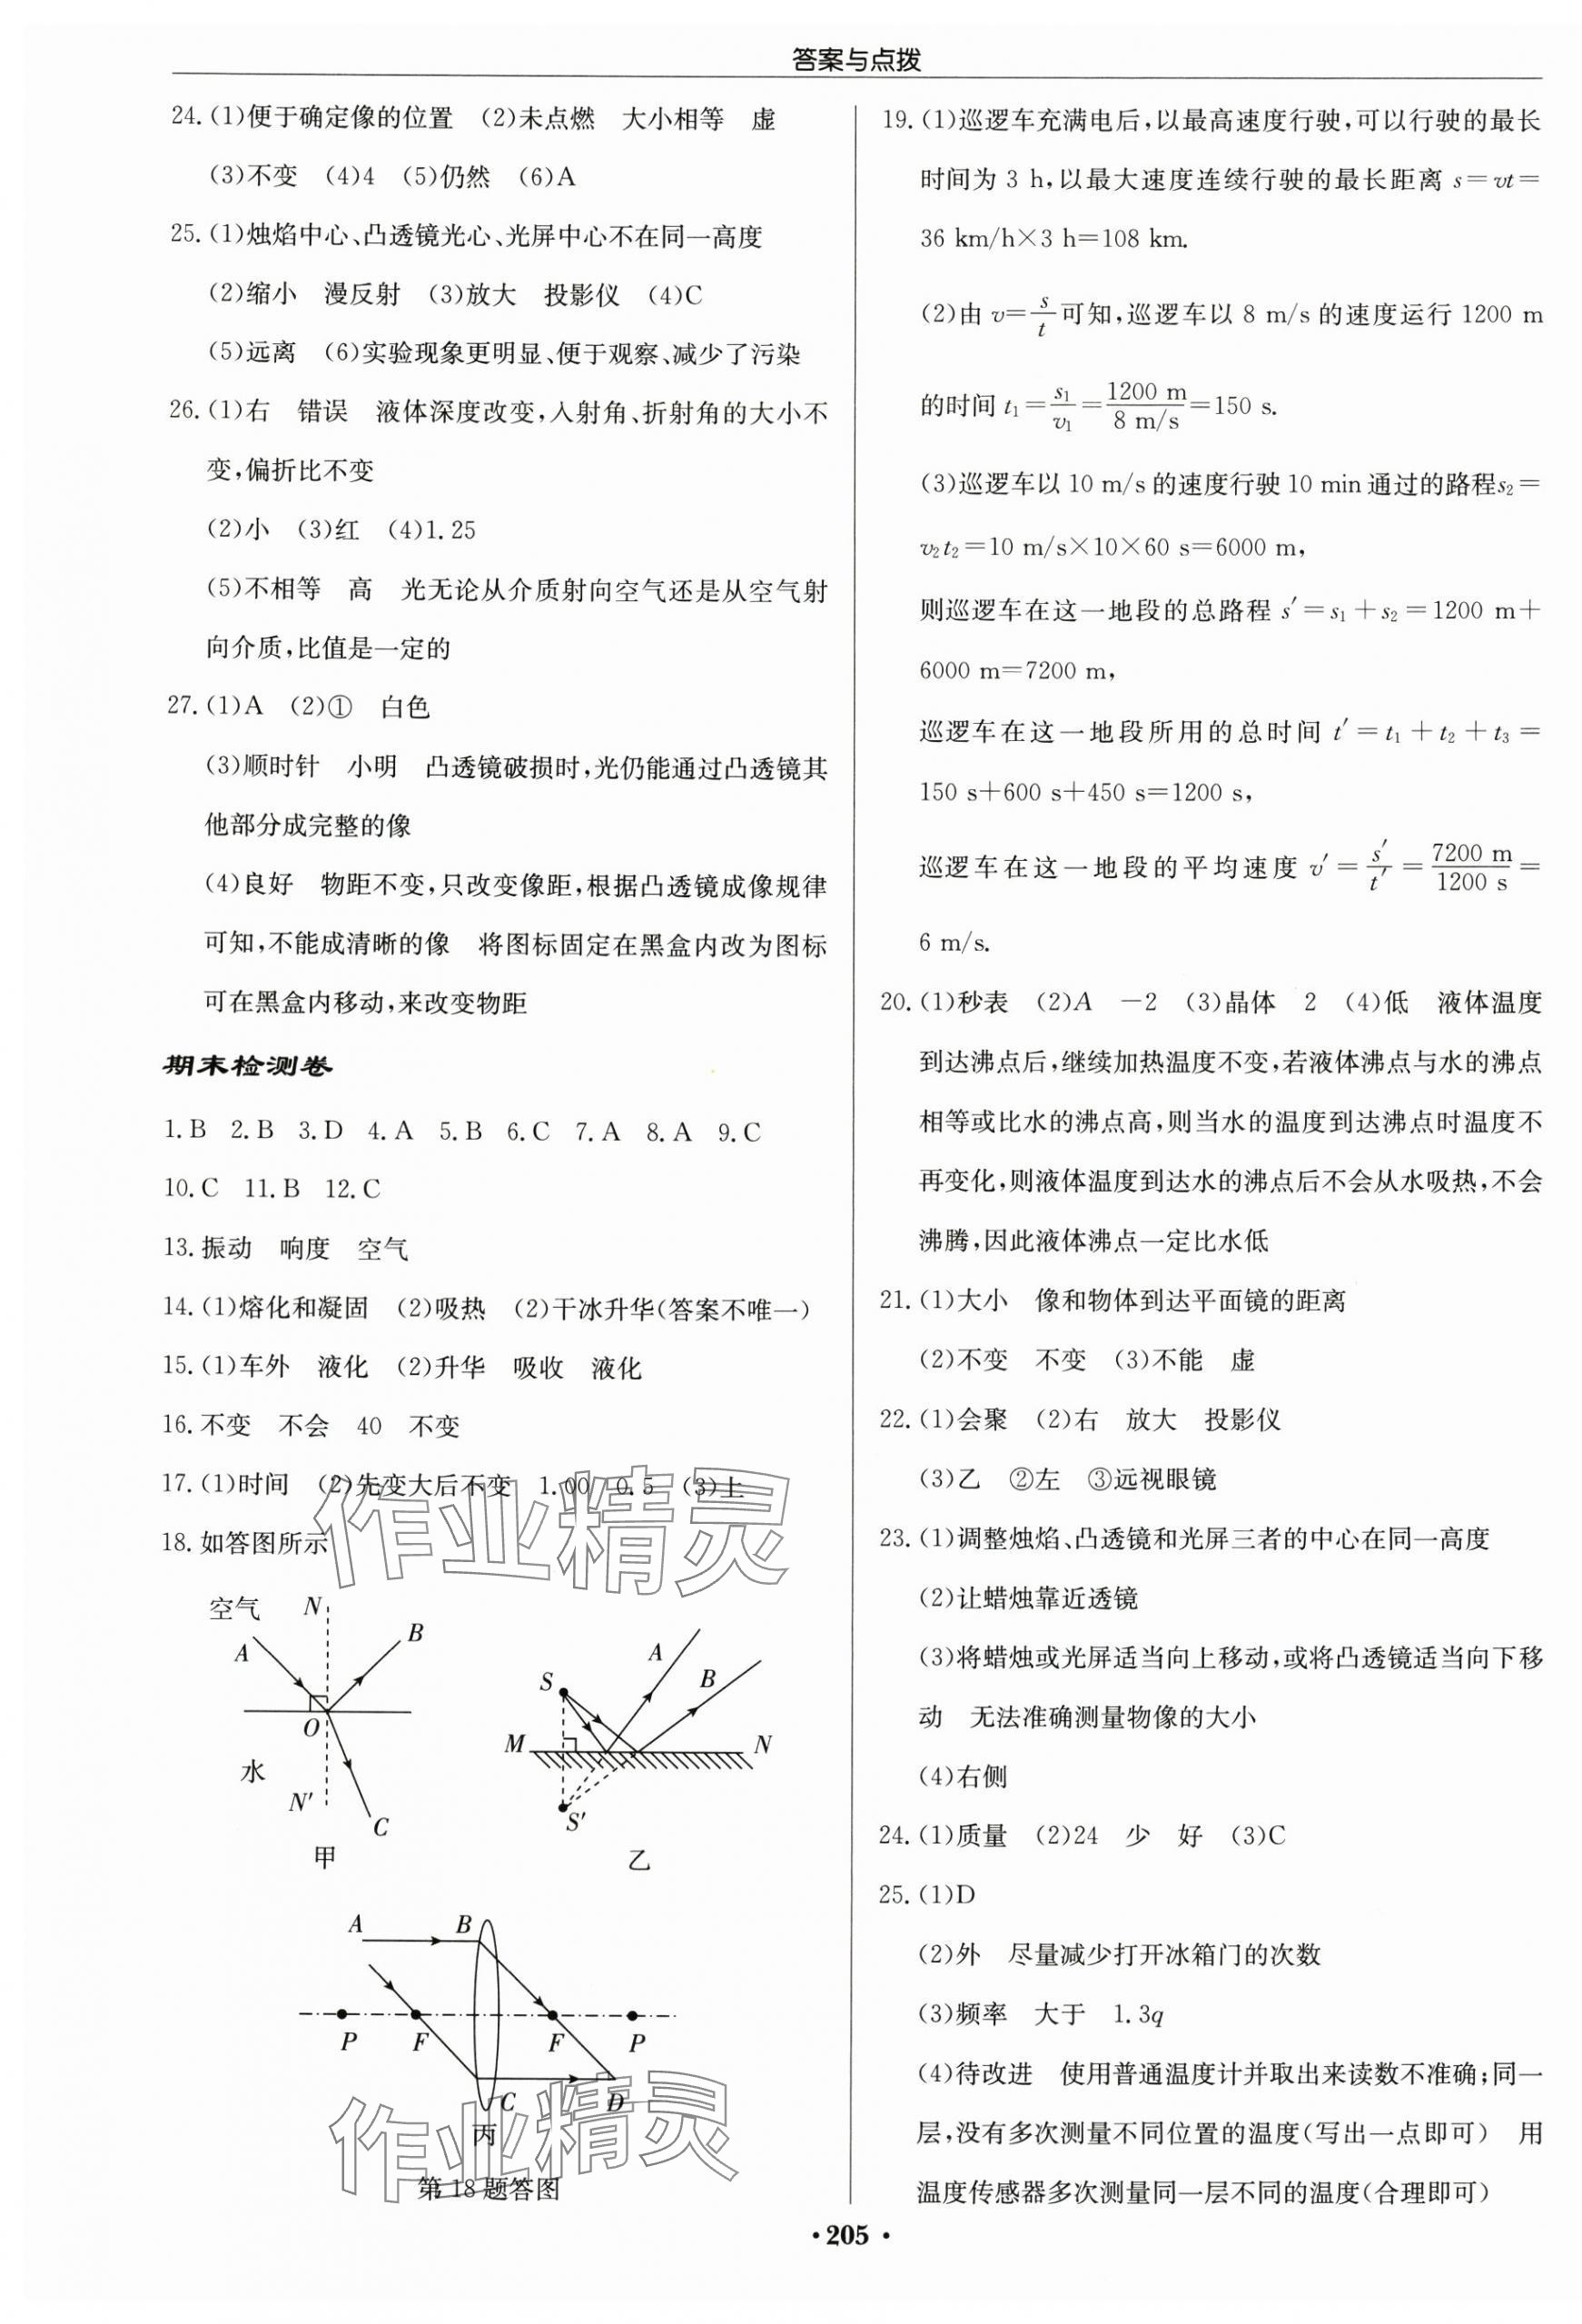 答案与点拨
24.(1)便于确定像的位置 (2)未点燃 大小相等 虚
(3)不变 (4)4 (5)仍然 (6)A
25.(1)烛焰中心、凸透镜光心、光屏中心不在同一高度
(2)缩小 漫反射 (3)放大 投影仪 (4)C
(5)远离 (6)实验现象更明显、便于观察、减少了污染
26.(1)右 错误 液体深度改变,入射角、折射角的大小不
变,偏折比不变
(2)小 (3)红 (4)1.25
(5)不相等 高 光无论从介质射向空气还是从空气射
向介质,比值是一定的
27.(1)A (2)① 白色
(3)顺时针 小明 凸透镜破损时,光仍能通过凸透镜其
他部分成完整的像
(4)良好 物距不变,只改变像距,根据凸透镜成像规律
可知,不能成清晰的像 将图标固定在黑盒内改为图标
可在黑盒内移动,来改变物距
期末检测卷
1.B 2.B 3.D 4.A 5.B 6.C 7.A 8.A 9.C
10.C 11.B 12.C
13.振动 响度 空气
14.(1)熔化和凝固 (2)吸热 (2)干冰升华(答案不唯一)
15.(1)车外 液化 (2)升华 吸收 液化
16.不变 不会 40 不变
17.(1)时间 (2)先变大后不变 1.00 0.5 (3)上
18.如答图所示
作业精灵
空气 N
A B
O
水
N′
C
甲
S A B
M N
S′
乙
A B
P F F P
C D
丙
作业精灵
第18题答图
19.(1)巡逻车充满电后,以最高速度行驶,可以行驶的最长
时间为 3 h,以最大速度连续行驶的最长距离 s=vt=
36 km/h×3 h=108 km.
(2)由 v=s/t可知,巡逻车以 8 m/s 的速度运行 1200 m
的时间 t₁=s₁/v₁=1200 m/8 m/s=150 s.
(3)巡逻车以 10 m/s 的速度行驶 10 min 通过的路程s₂=
v₂t₂=10 m/s×10×60 s=6000 m,
则巡逻车在这一地段的总路程 s′=s₁+s₂=1200 m+
6000 m=7200 m,
巡逻车在这一地段所用的总时间 t′=t₁+t₂+t₃=
150 s+600 s+450 s=1200 s,
巡逻车在这一地段的平均速度 v′=s′/t′=7200 m/1200 s=
6 m/s.
20.(1)秒表 (2)A −2 (3)晶体 2 (4)低 液体温度
到达沸点后,继续加热温度不变,若液体沸点与水的沸点
相等或比水的沸点高,则当水的温度到达沸点时温度不
再变化,则液体温度到达水的沸点后不会从水吸热,不会
沸腾,因此液体沸点一定比水低
21.(1)大小 像和物体到达平面镜的距离
(2)不变 不变 (3)不能 虚
22.(1)会聚 (2)右 放大 投影仪
(3)乙 ②左 ③远视眼镜
23.(1)调整烛焰、凸透镜和光屏三者的中心在同一高度
(2)让蜡烛靠近透镜
(3)将蜡烛或光屏适当向上移动,或将凸透镜适当向下移
动 无法准确测量物像的大小
(4)右侧
24.(1)质量 (2)24 少 好 (3)C
25.(1)D
(2)外 尽量减少打开冰箱门的次数
(3)频率 大于 1.3q
(4)待改进 使用普通温度计并取出来读数不准确;同一
层,没有多次测量不同位置的温度(写出一点即可) 用
温度传感器多次测量同一层不同的温度(合理即可)
·205·